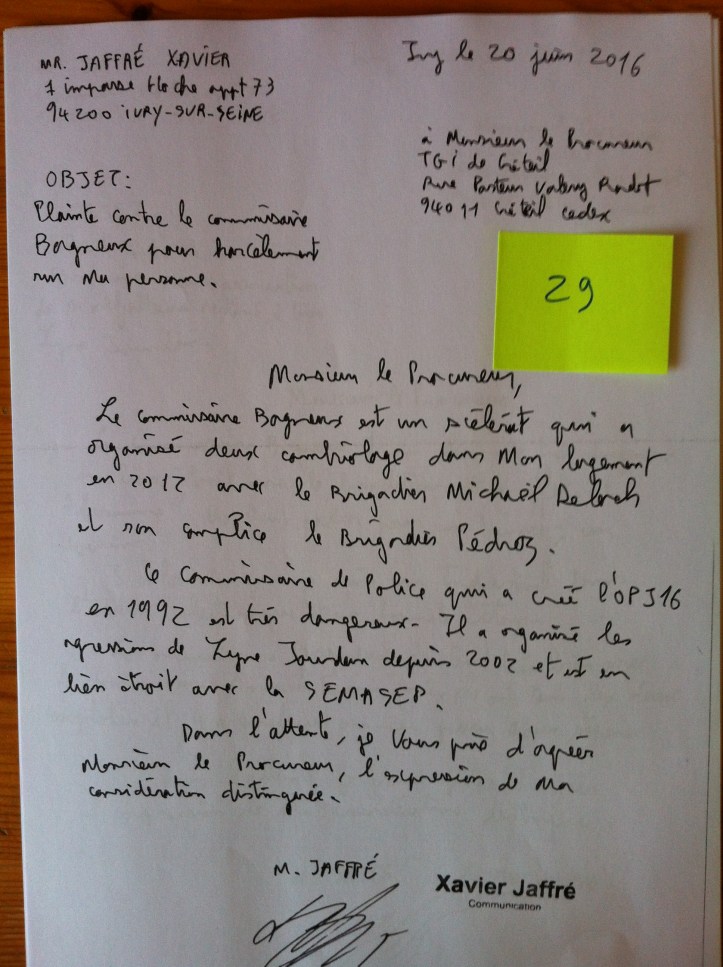 MR. JAFFRÉ XAVIER
1 impasse Hoche appt 73
94200 iVRY-SUR-SEiNE
Ivry le 20 juin 2016
à Monsieur le Procureur
TGi de Créteil
Rue Pasteur Valery Radot
94011 Créteil cedex
OBJET:
Plainte contre le commissaire
Bagneux pour harcèlement
sur ma personne.
29
Monsieur le Procureur,
Le commissaire Bagneux est un scélérat qui a
organisé deux cambriolage dans mon logement
en 2012 avec le Brigadier Michaël
et son complice le Brigadier Pédroz.
Ce Commissaire de Police qui a créé l'OPJ16
en 1992 est très dangereux. Il a organisé les
agressions de depuis 2002 et est en
lien étroit avec la SEMASEP.
Dans l'attente, je vous prie d'agréer
Monsieur le Procureur, l'expression de ma
considération distinguée.
M. JAFFRÉ
Xavier Jaffré
Communication